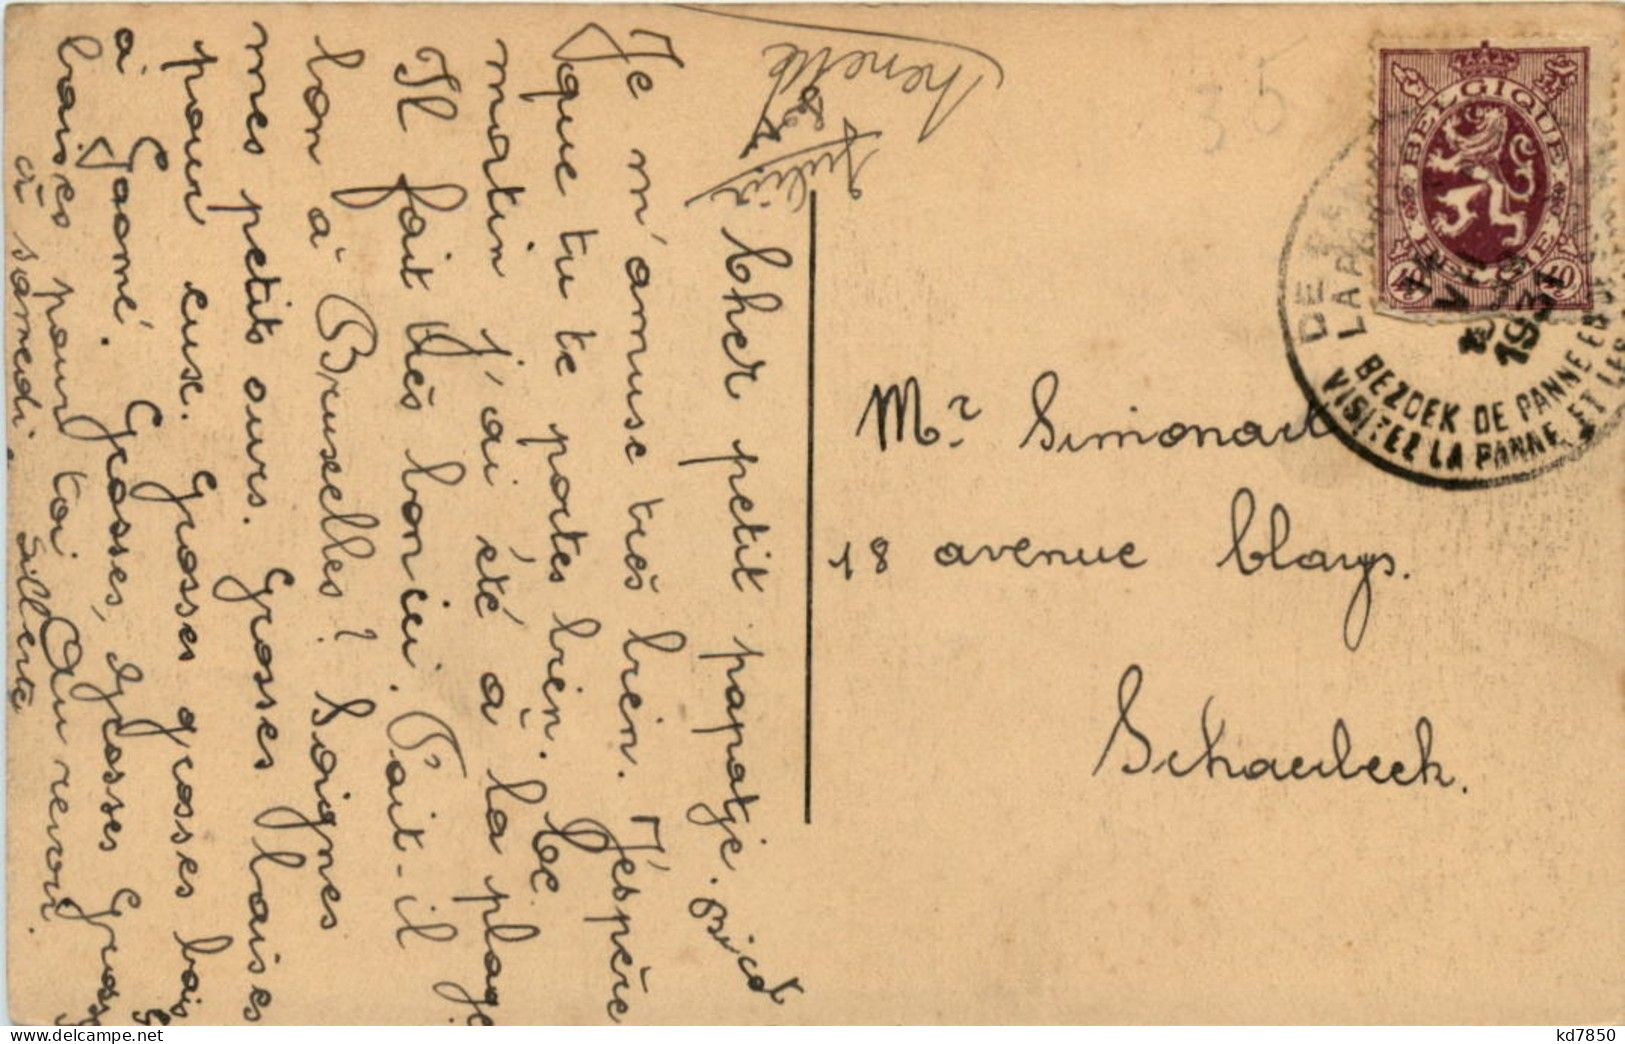 Cher petit papatje.
Je m'amuse très bien. J'éspère
que tu te portes bien. Ce
matin j'ai été à la plage
Il fait très bon ici. Fait-il
bon à Bruxelles? Soignes
mes petits ours. Grosses baises
pour euse. Grosses grosses bais
à Gaomé. Grosses, Grosses Gross
baises pour toi Au revoir.
à samedi.
35
BELGIQUE
BELGIE
40 40
1931
DE PA
LA PA
BEZOEK DE PANNE EN DE
VISITEZ LA PANNE ET LES
Mr. Simonart
18 avenue Clays.
Schaerbeek.
kd7850